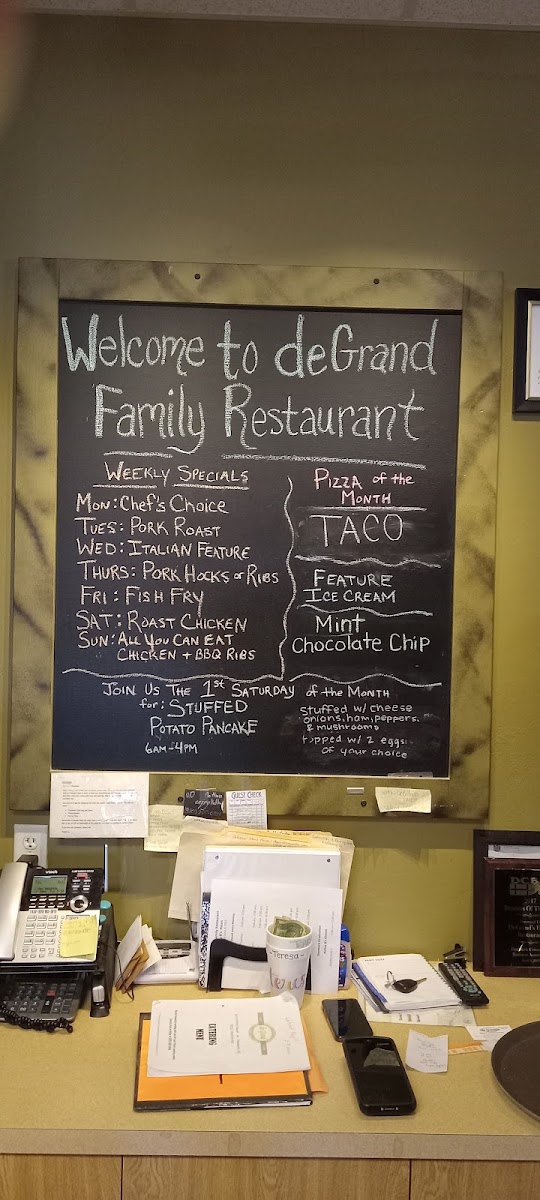 Welcome to deGrand
Family Restaurant
Weekly Specials
Mon: Chef's Choice
Tues: Pork Roast
Wed: Italian Feature
Thurs: Pork Hocks or Ribs
Fri: Fish Fry
Sat: Roast Chicken
Sun: All You Can Eat
Chicken + BBQ Ribs
Pizza of the
Month
TACO
Feature
Ice Cream
Mint
Chocolate Chip
Join Us The 1st Saturday of the Month
for: Stuffed
Potato Pancake
6am-4pm
Stuffed w/ cheese
onions, ham, peppers,
& mushrooms
topped w/ 2 eggs
of your choice
GUEST CHECK
vtech
Teresa
CATERING
MENU